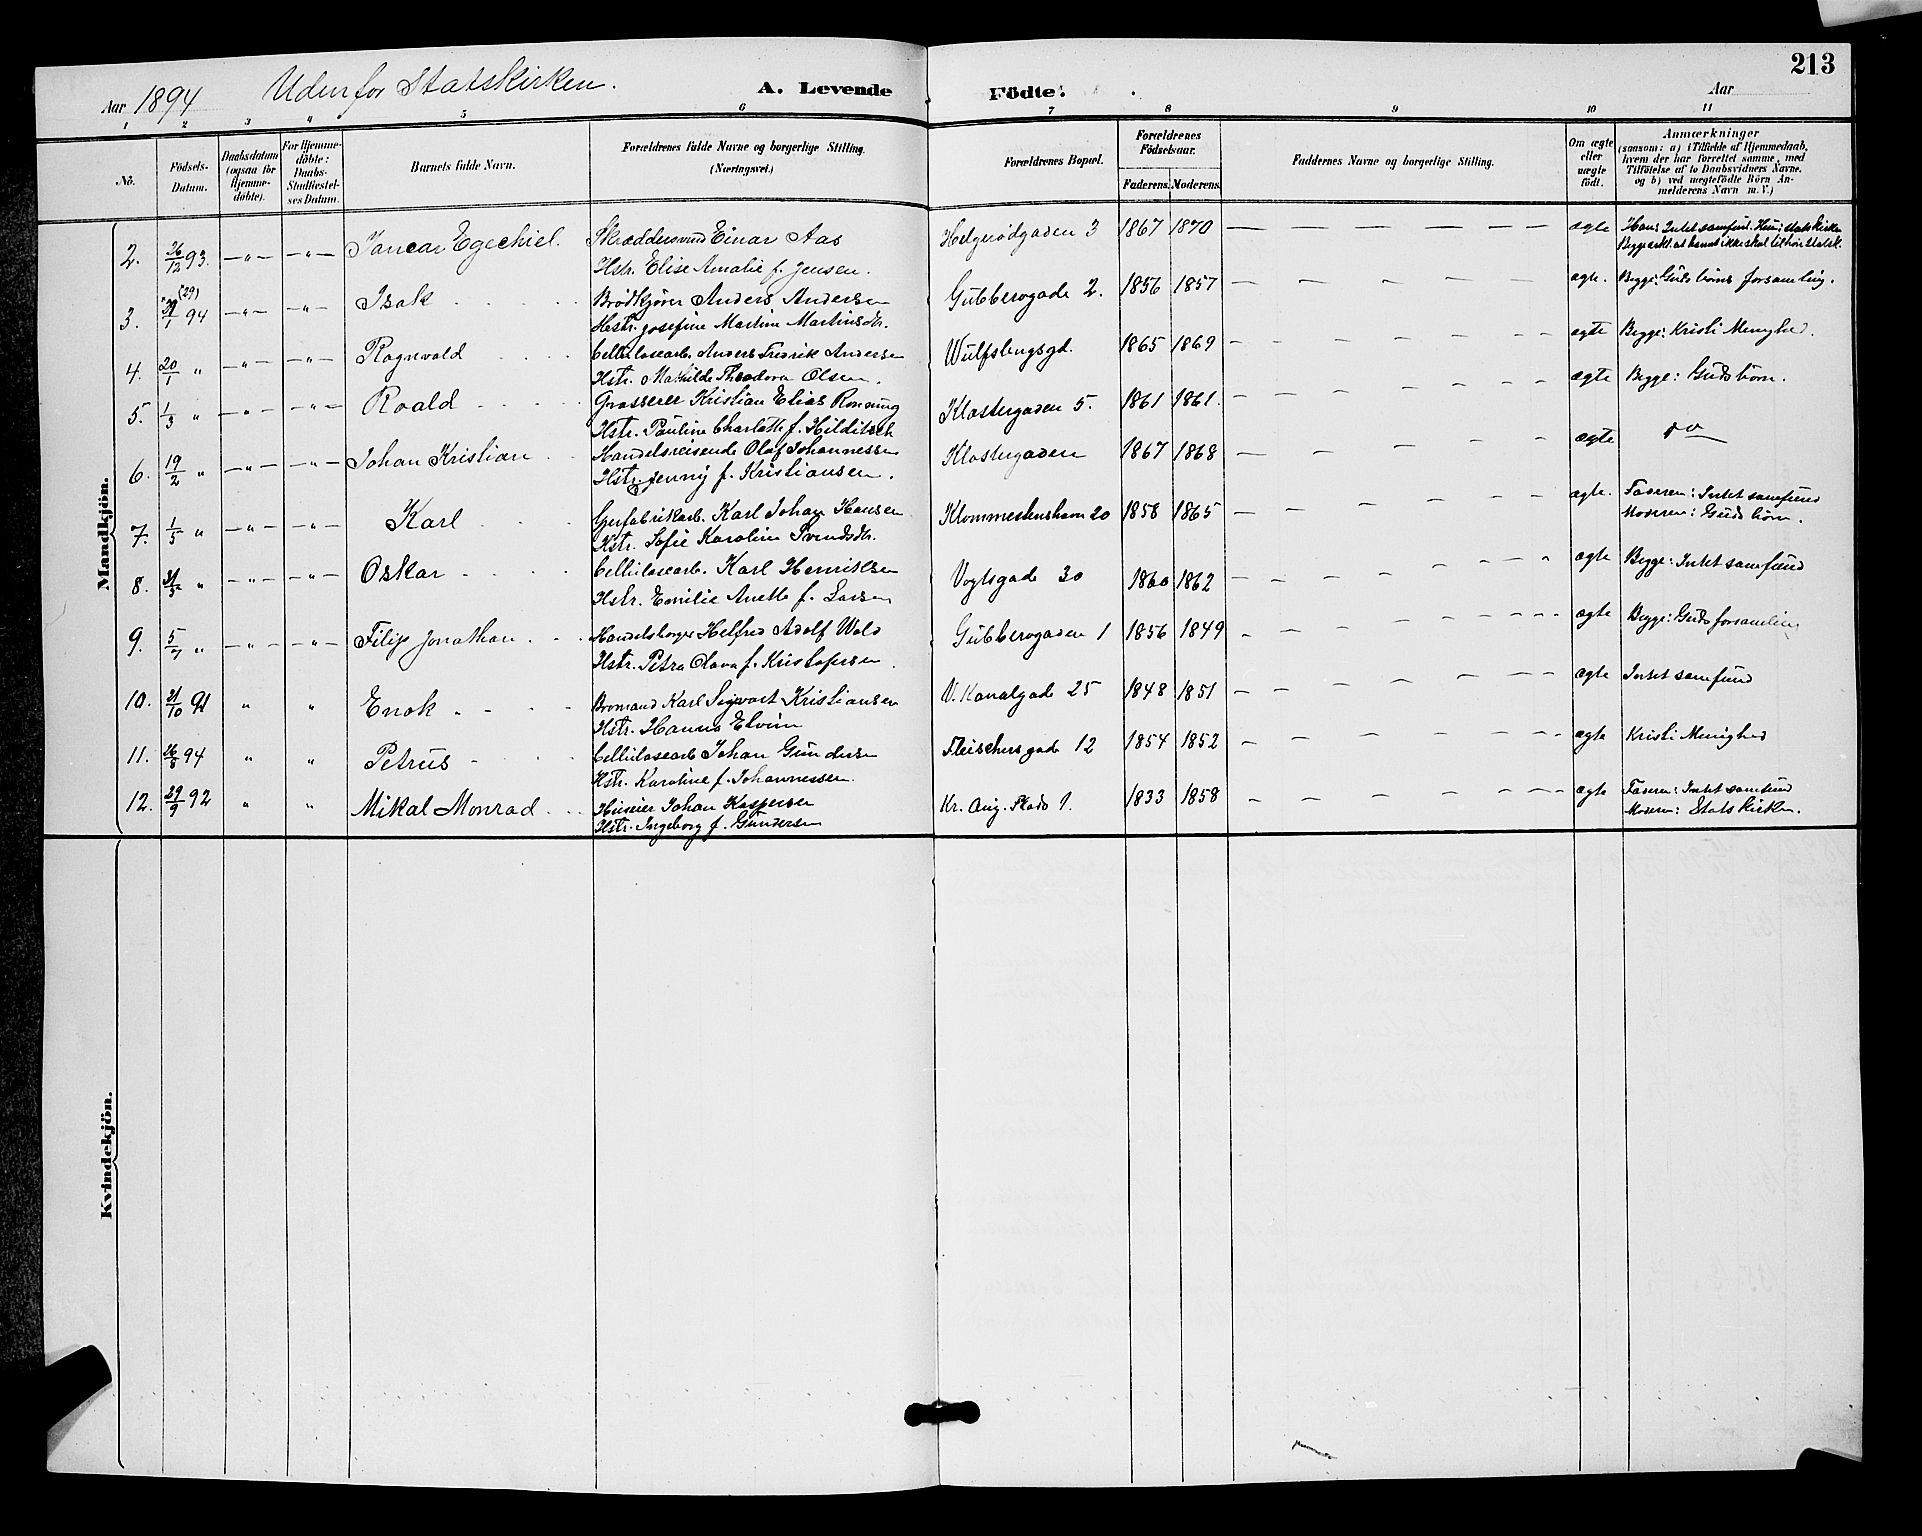 213
Aar 1894 Udenfor Statskirken. A. Levende Födte. Aar
1 2 3 4 5 6 7 8 9 10 11
No.
Födsels-Datum.
Daabsdatum (ogsaa for Hjemmedöbte).
For Hjemmedöbte: Daabs-Stadfæstelses Datum.
Barnets fulde Navn.
Forældrenes fulde Navne og borgerlige Stilling. (Næringsvei.)
Forældrenes Bopæl.
Forældrenes Födselsaar.
Faderens. Moderens.
Faddernes Navne og borgerlige Stilling.
Om ægte eller uægte födt.
Anmærkninger (saasom: a) i Tilfælde af Hjemmedaab, hvem der har forrettet samme, med Tilföielse af to Daabsvidners Navne, og b) ved uægtefödte Börn Anmelderens Navn m. V.)
Mandkjön.
2. 26/12 93. — " — — " — Egechiel. Skræddersvend Einar Aas Helgerödgaden 3 1867 1870 — — — — — — ægte Han: Intet samfund. Hun: Statskirken
Hstr. Elise Amalie f. Jensen.
3. (29) /1 94 — " — — " — Isak Brödkjører Anders Andersen Gubberogade 2. 1856 1857 — — — — — — ægte. Begge: Guds börns forsamling.
Hstr. Josefine Martine Martinsdtr.
4. 20/1 " — " — — " — Ragnvald Cellulosearb. Anders Fredrik Andersen Wulfsbergsgd. 1865 1869 — — — — — — ægte Begge: Kristi Menighed.
Hstr. Mathilde Theodora Olsen.
5. 1/3 " — " — — " — Roald Grosserer Kristian Elias Rönning Klostergaden 5. 1861 1861. — — — — — — ægte Begge: Guds börn.
Hstr. Pauline Charlotte f. Hilditsch
6. 19/2 " — " — — " — Johan Kristian Handelsreisende Olaf Johannessen Klostergaden 1867 1868 — — — — — — ægte do
Hstr. Jenny f. Kristiansen.
7. 1/5 " — " — — " — Karl Karl Johan Hansen Klommestenshavn 20 1858 1865 — — — — — — ægte. Faderen: Intet samfund
Hstr. Sofie Karoline Svendsdtr. Moderen: Guds börn.
8. 31/3 " — " — — " — Oskar Cellulosearb. Karl Henriksen Vogtsgade 30 1860 1862 — — — — — — ægte Begge: Intet samfund
Hstr. Emilie Anette f. Larsen
9. 5/7 " — " — — " — Filip Jonathan Handelsborger Helfred Adolf Wold Gubberogaden 1 1856 1849 — — — — — — ægte Begge: Guds forsamling
Hstr. Petra Olava f. Kristofersen.
10. 21/10 91 " " Enok Bromand Karl Sigvart Kristiansen V. Kanalgade 25 1848 1851 — — — — — — ægte Intet samfund
Hstr. Hanna
11. 26/8 94 " " Petrus Cellulosearb Johan Gundersen Fleischersgade 12 1854 1852 — — — — — — ægte Kristi Menighed
Hstr. Karoline f. Johannessen.
12. 29/9 92 " " Mikal Monrad Huseier Johan Kaspersen Kr. Aug. Plads 1. 1833 1858 — — — — — — ægte Faderen: Intet samfund
Hstr. Ingeborg f. Gundersen Moderen: Statskirken.
Kvindekjön.